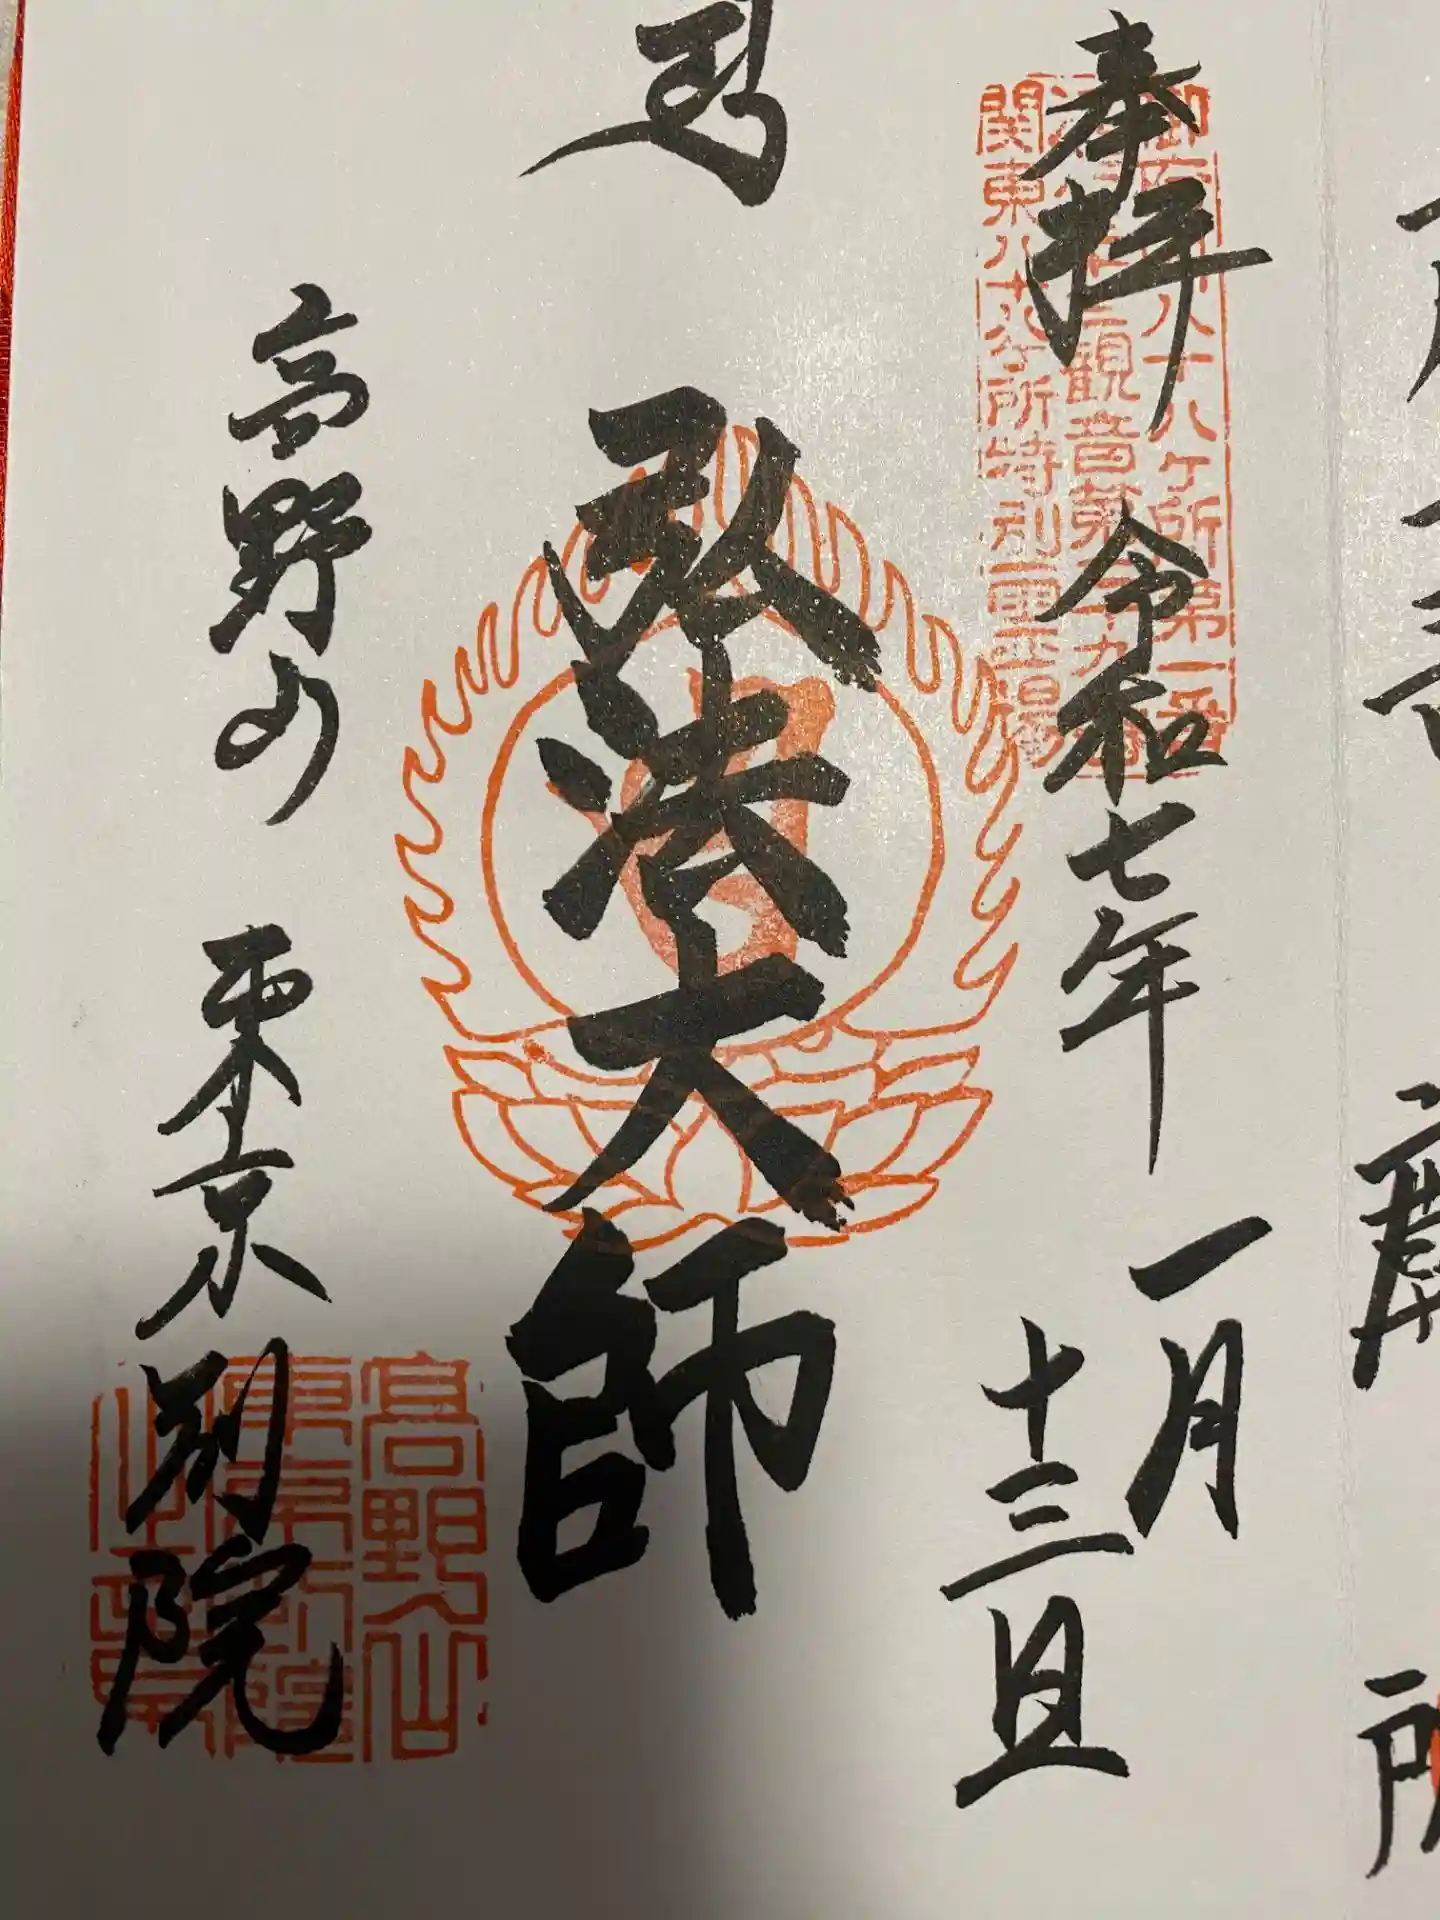 奉拝
令和七年
一月
十三日
御府内八十八ヶ所第一番
観音第二十九番
関東八十八ヶ所特別霊場
弘法大師
高野山
東京別院
高野山
東京別院
之印